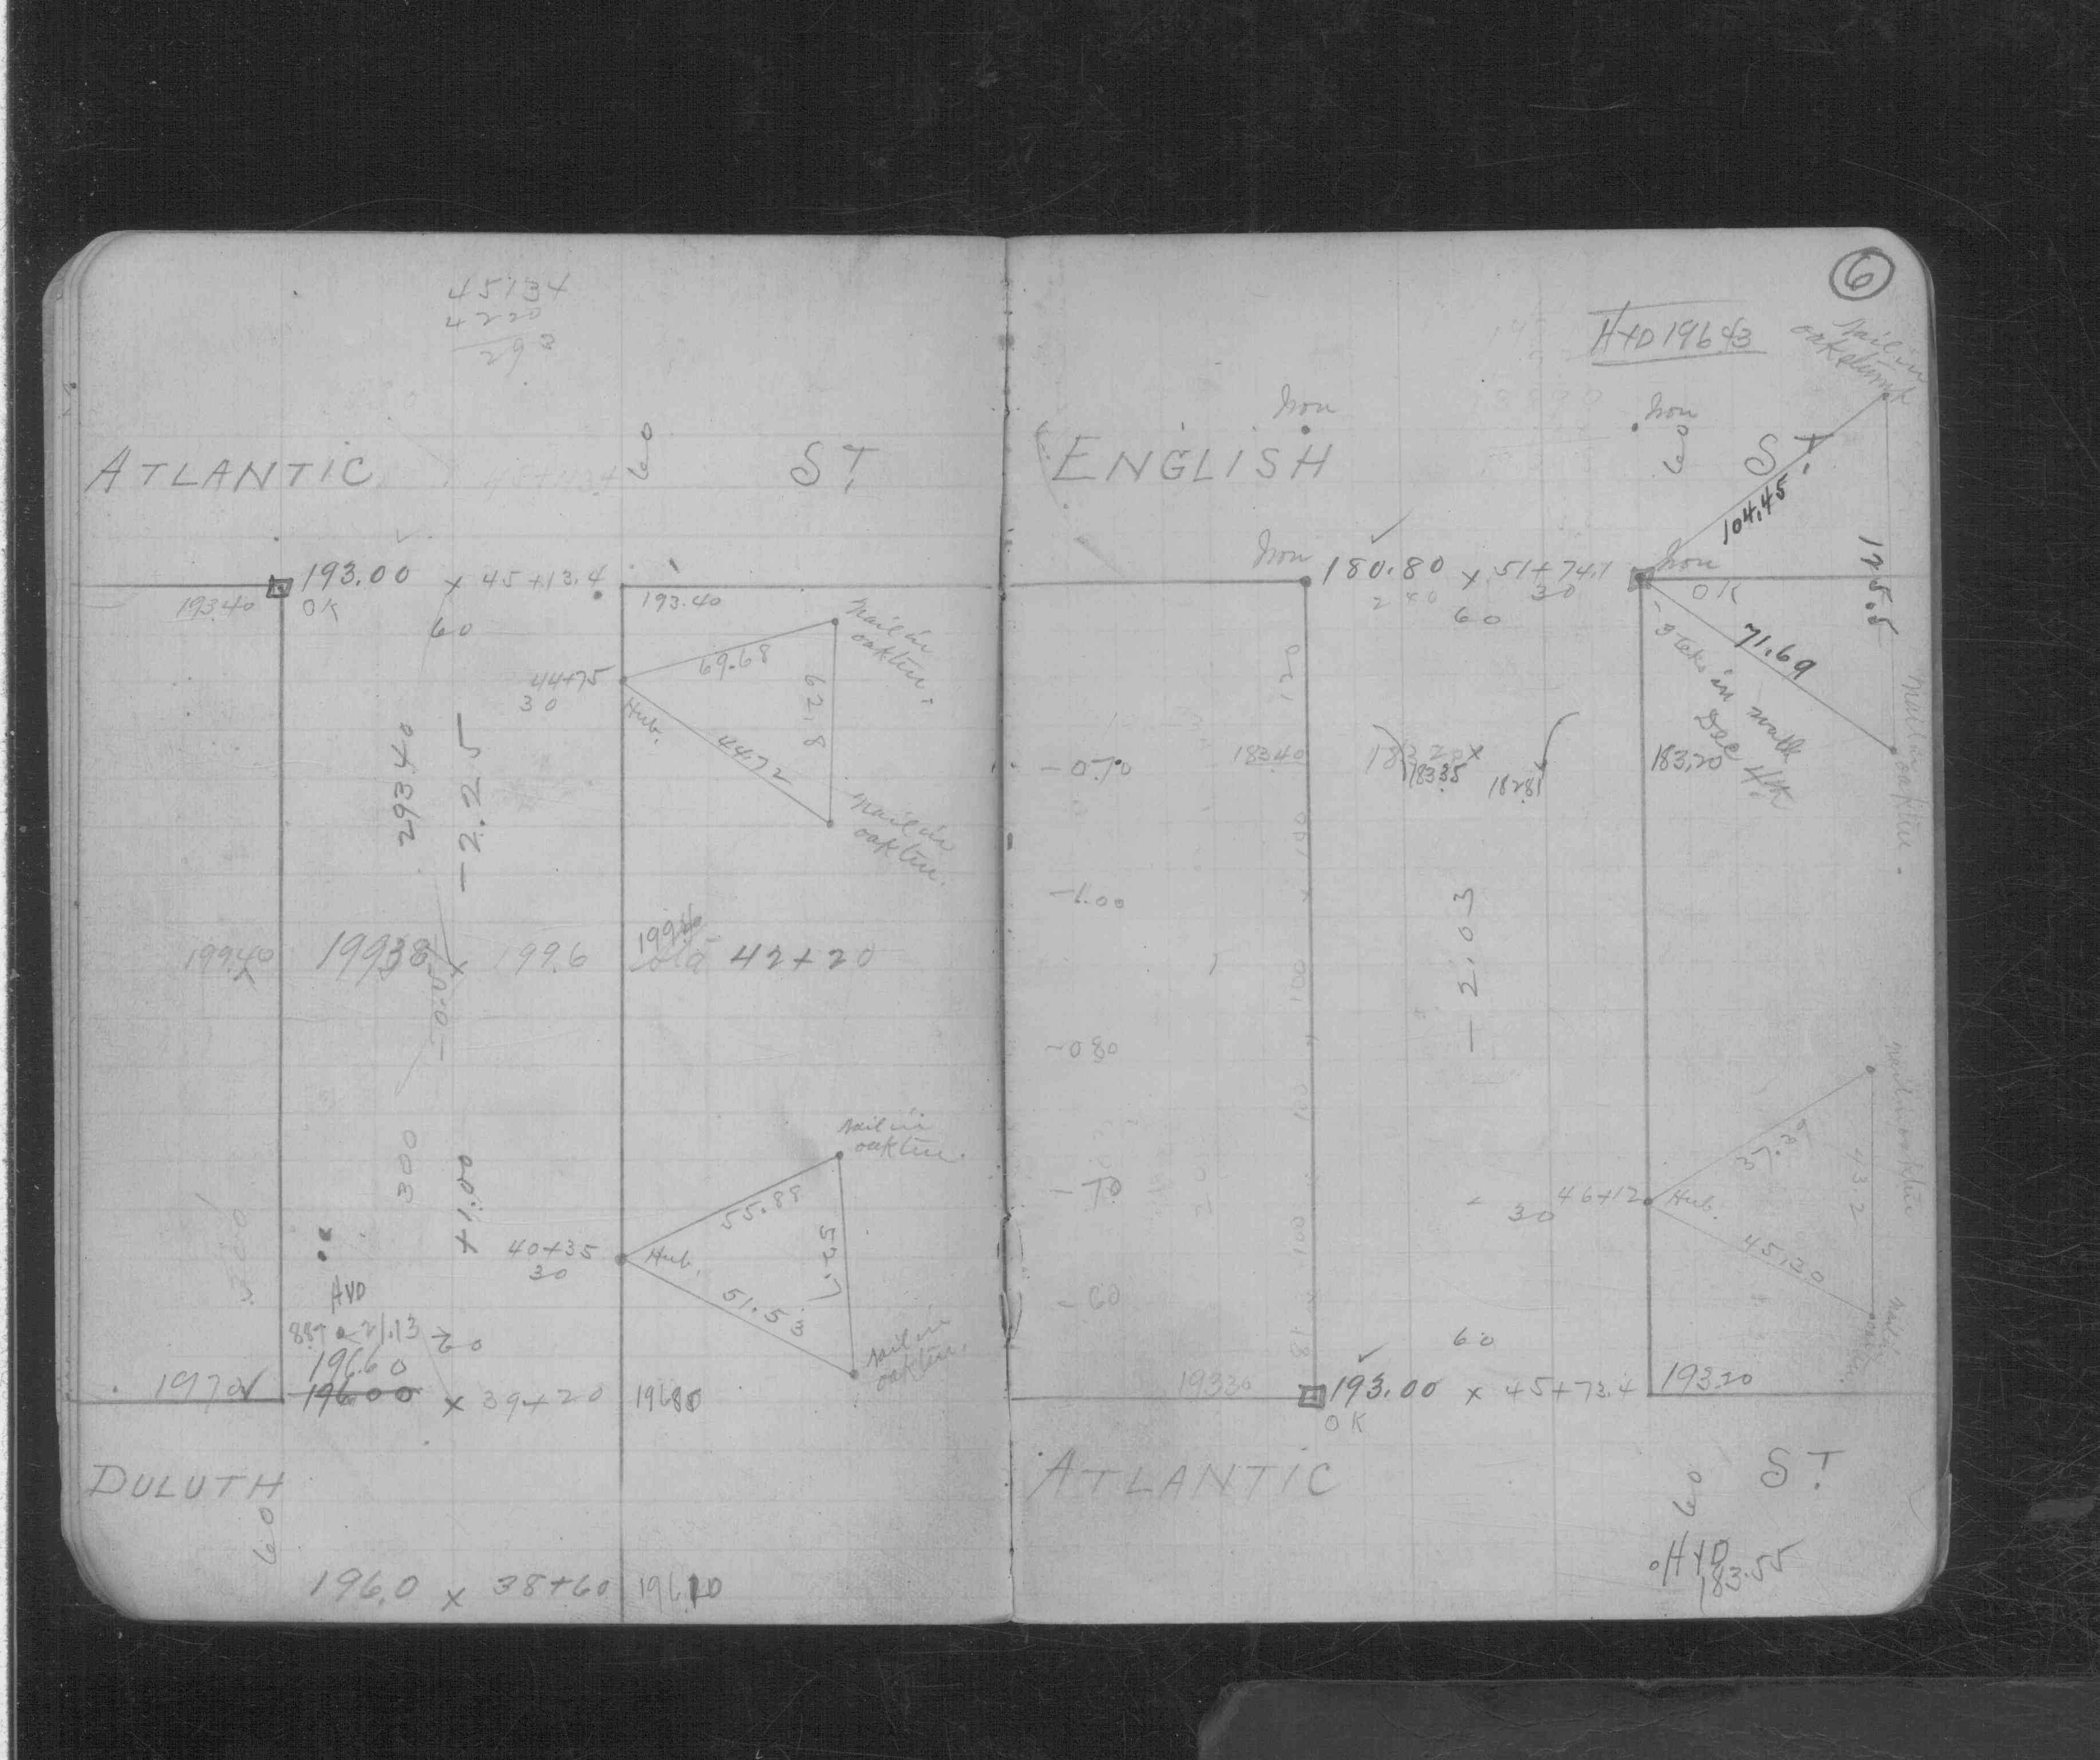 45134
4220
293
ATLANTIC 60 ST.
193.00 x 45+13.4
193.40 OK 193.40
60
44+75
30
Hub.
69.68
62.8
44.72
nail in
oak tree.
nail in
oak tree.
293.40
-2.25
199.40 199.38 x 199.6 42+20
300
+1.00
nail in
oak tree.
55.88
52.7
40+35
30
Hub.
51.53
nail in
oak tree.
HYD
196.60
196.00 x 39+20 196.80
DULUTH
60
196.0 x 38+60 196.10
6
HYD 196.43
nail in
oak stump
Iron
Iron
ENGLISH 60 ST.
104.45
125.5
Iron 180.80 x 51+74.1 Iron
30 OK
60
71.69
Stake in walk
Dec
nail in oak tree.
120
-0.70 183.40 183.20 x 183.20
183.35 182.81
-1.00
100
-2.03
-0.80
100
nail in oak tree
37.39
43.2
-.70
46+12 Hub.
30
45.30
100
-.60
60
81
193.30 193.00 x 45+73.4 193.20
OK
ATLANTIC 60 ST.
HYD
183.55